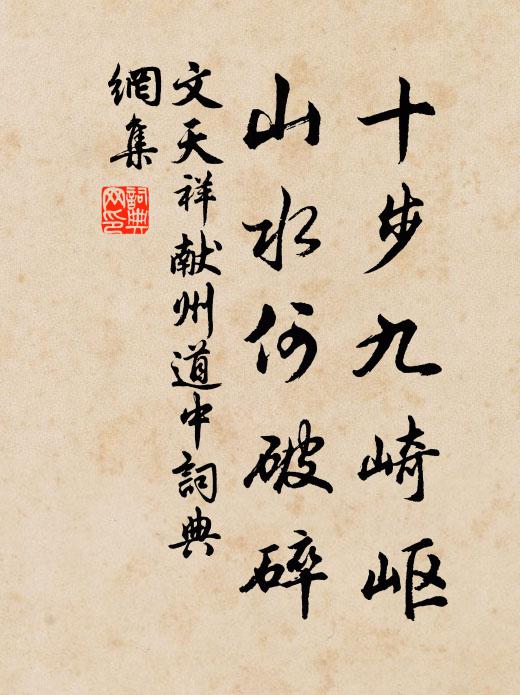 十步九崎岖
山水何破碎
文天祥献州道中詞典
網集
詞典
网印